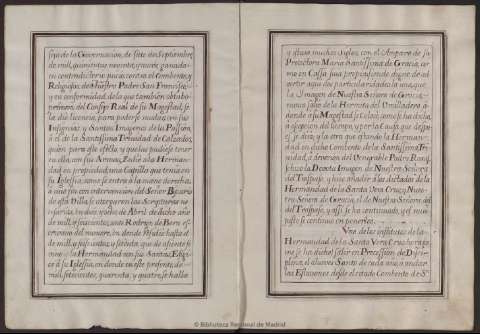 seja de la Governacion, de siete de Septiembre,
de mil, quinientos noventa, y nueve ganada en
contradictorio juicio contra el Combento, y
Religiosos de Nuestro Padre San Francisco;
y en conformidad de lo que tambien obtubo
del Consejo Real de su Magestad, se
le dio licencia, para poderse mudar con sus
Insignias, y Santas Imagenes de la Passion,
à el de la Santissima Trinidad de Calzados,
quien para este efecto, y que los pudiese tener
en ella, con sus Armas, zedio à la Herman-
dad en propiedad, una Capilla que tenia en
su Iglesia, como se entra à la mano derecha,
à cuio fin con intervencion del Señor Vicario
de esta Villa, se otorgaron las Scripturas ne-
cesarias, en dos de Abril de dicho año
de mil, y seiscientos, ante Rodrigo de Vera es-
crivano del numero, en donde estubo hasta el
de mil, y seiscientos, y setenta, que de asiento se
mudò la Hermandad con sus Santas Efigies
à su Iglesia, en donde en este presente, de
mil, setecientos, quarenta, y quatro, se halla
y estarà muchos siglos, con el Amparo de su
Protectora Maria Santissima de Gracia, co-
mo en Cassa suia propia; siendo digno de ad-
vertir aqui dos particularidades, la una, que
la Imagen de Nuestra Señora de Gracia,
nunca saliò de la Hermita del Umilladero à
donde à su Magestad se colocò, como se ha dicho,
à excepcion del tiempo, y por la causa que despues
se dirà, y la otra que estando la Herman-
dad en dicho Combento de la Santissima Tri-
nidad, à devocion del Venerable Padre Roxas,
se hizo la Devota Imagen de Nuestro Señor
del Traspaso, y que añadir à los dictados de la
Hermandad de la Santa Vera Cruz, y Nues-
tra Señora de Gracia, el de Nuestro Señor
del Traspaso, y assi se ha continuado, y el mis-
mo se continua en ponerlos.
Uno de los institutos de la
Hermandad de la Santa Vera Cruz, hera (co-
mo se ha dicho) salir en Procession de Disci-
plina, el Jueves Santo de cada año, à andar
las Estaciones desde el citado Combento de Sn.
© Biblioteca Regional de Madrid